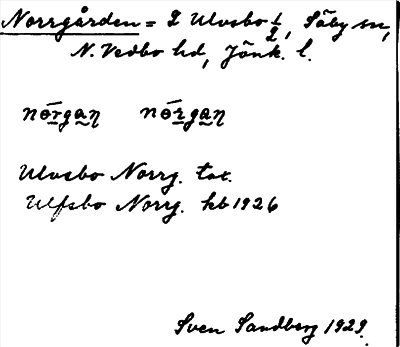 Norrgården = I Ulvsbo 1/2, Säby sn,
N. Vedbo hd, Jönk. l.
nǿrgan nǿrgan
Ulvsbo Norrg. tax.
Ulfsbo Norrg. kb 1926
Sven Sandberg 1929.